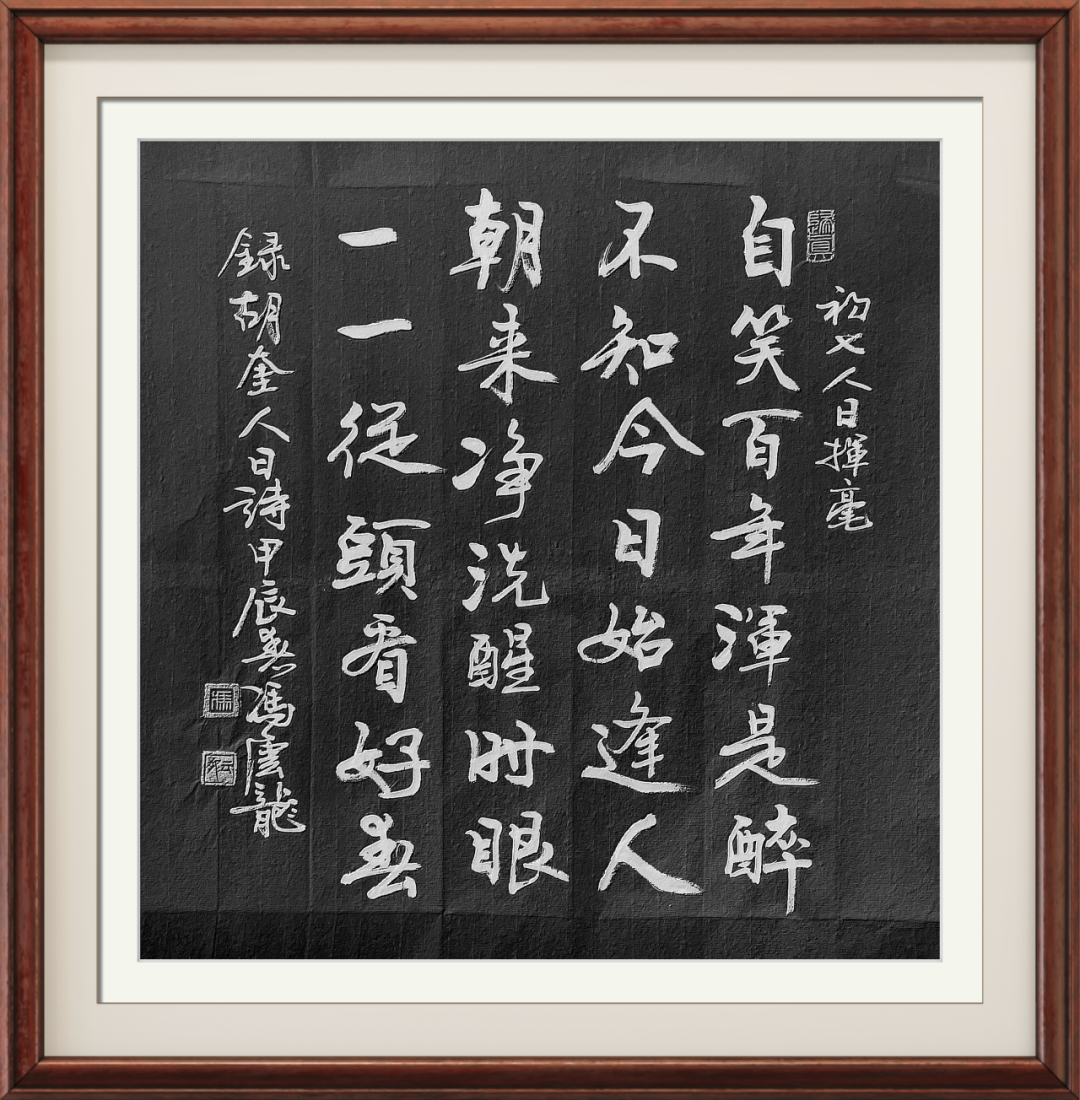 初七人日揮毫
自笑百年渾是醉
不知今日始逢人
朝来净洗醒时眼
一一從頭看好春
錄胡奎人日詩甲辰春馮雲龍